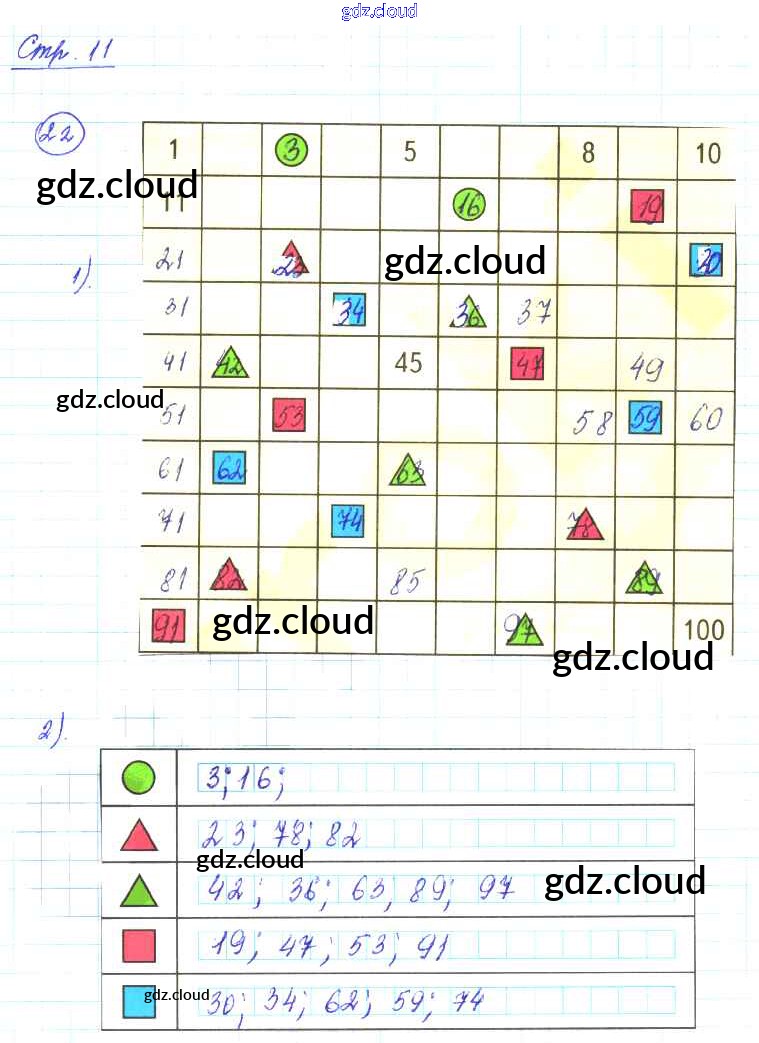 gdz.cloud
Стр. 11
22
1 3 5 8 10
gdz.cloud
11 16 19
1). 21 23 gdz.cloud 30
31 34 36 37
41 42 45 47 49
gdz.cloud
51 53 58 59 60
61 62 63
71 74 78
81 82 85 89
91 gdz.cloud 97 100
gdz.cloud
2).
3; 16;
23; 78; 82
gdz.cloud
42; 36; 63, 89; 97 gdz.cloud
19; 47; 53; 91
gdz.cloud 30; 34; 62; 59; 74